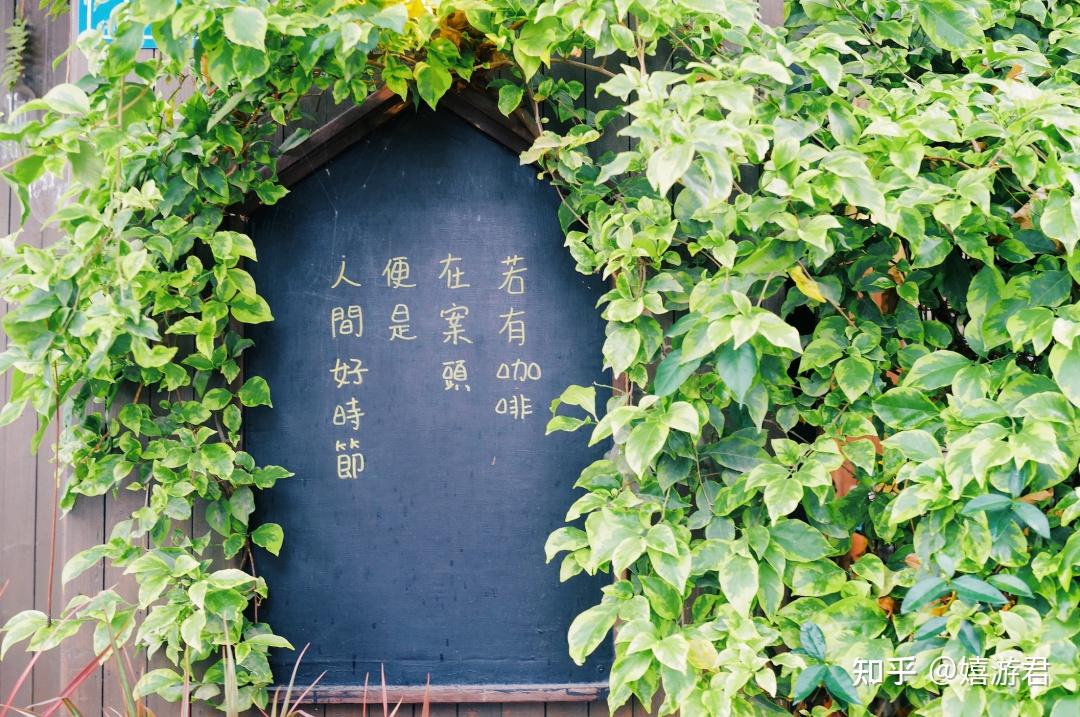 若有咖啡
在案頭
便是
人間好時節
知乎 @嬉游君